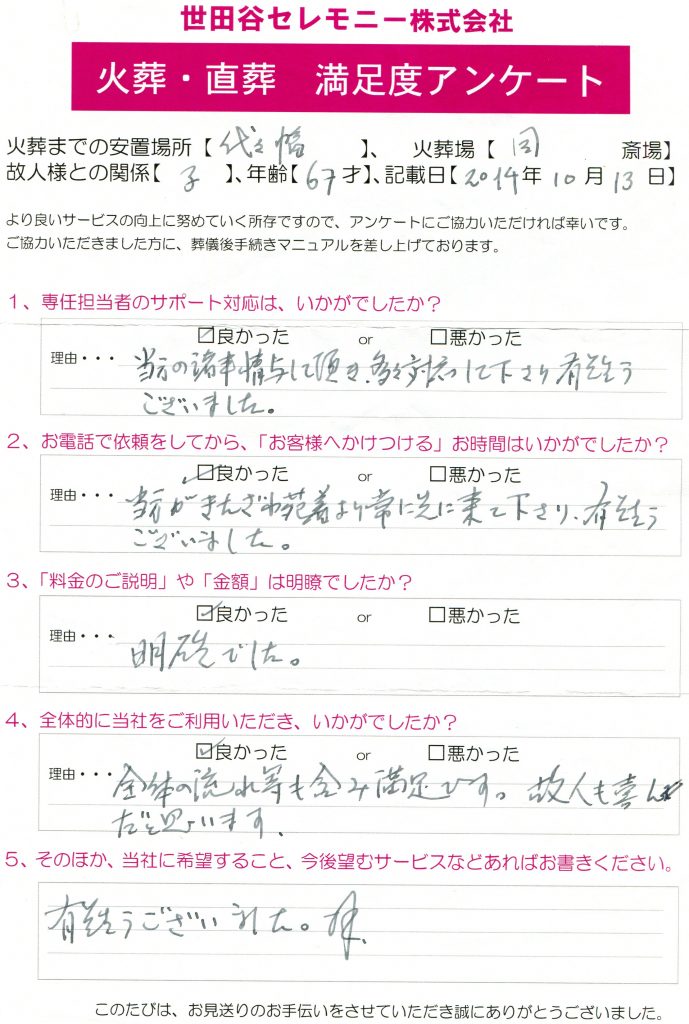 世田谷セレモニー株式会社
火葬・直葬 満足度アンケート
火葬までの安置場所【 代々幡 】、 火葬場【 同 斎場】
故人様との関係【 子 】、年齢【 67 才】、記載日【 2014 年 10 月 13 日】
より良いサービスの向上に努めていく所存ですので、アンケートにご協力いただければ幸いです。
ご協力いただきました方に、葬儀後手続きマニュアルを差し上げております。
1、専任担当者のサポート対応は、いかがでしたか？
☑良かった or □悪かった
理由・・・ 当方の諸事情 して頂き、 対応して下さり 有難う
ございました。
2、お電話で依頼をしてから、「お客様へかけつける」お時間はいかがでしたか？
☑良かった or □悪かった
理由・・・ 当方が 着より常に先に来て下さり、有難う
ございました。
3、「料金のご説明」や「金額」は明瞭でしたか？
☑良かった or □悪かった
理由・・・ 明確でした。
4、全体的に当社をご利用いただき、いかがでしたか？
☑良かった or □悪かった
理由・・・ 全体の流れ等も含み満足です。故人も喜ん
だと思います。
5、そのほか、当社に希望すること、今後望むサービスなどあればお書きください。
有難うございました。
このたびは、お見送りのお手伝いをさせていただき誠にありがとうございました。